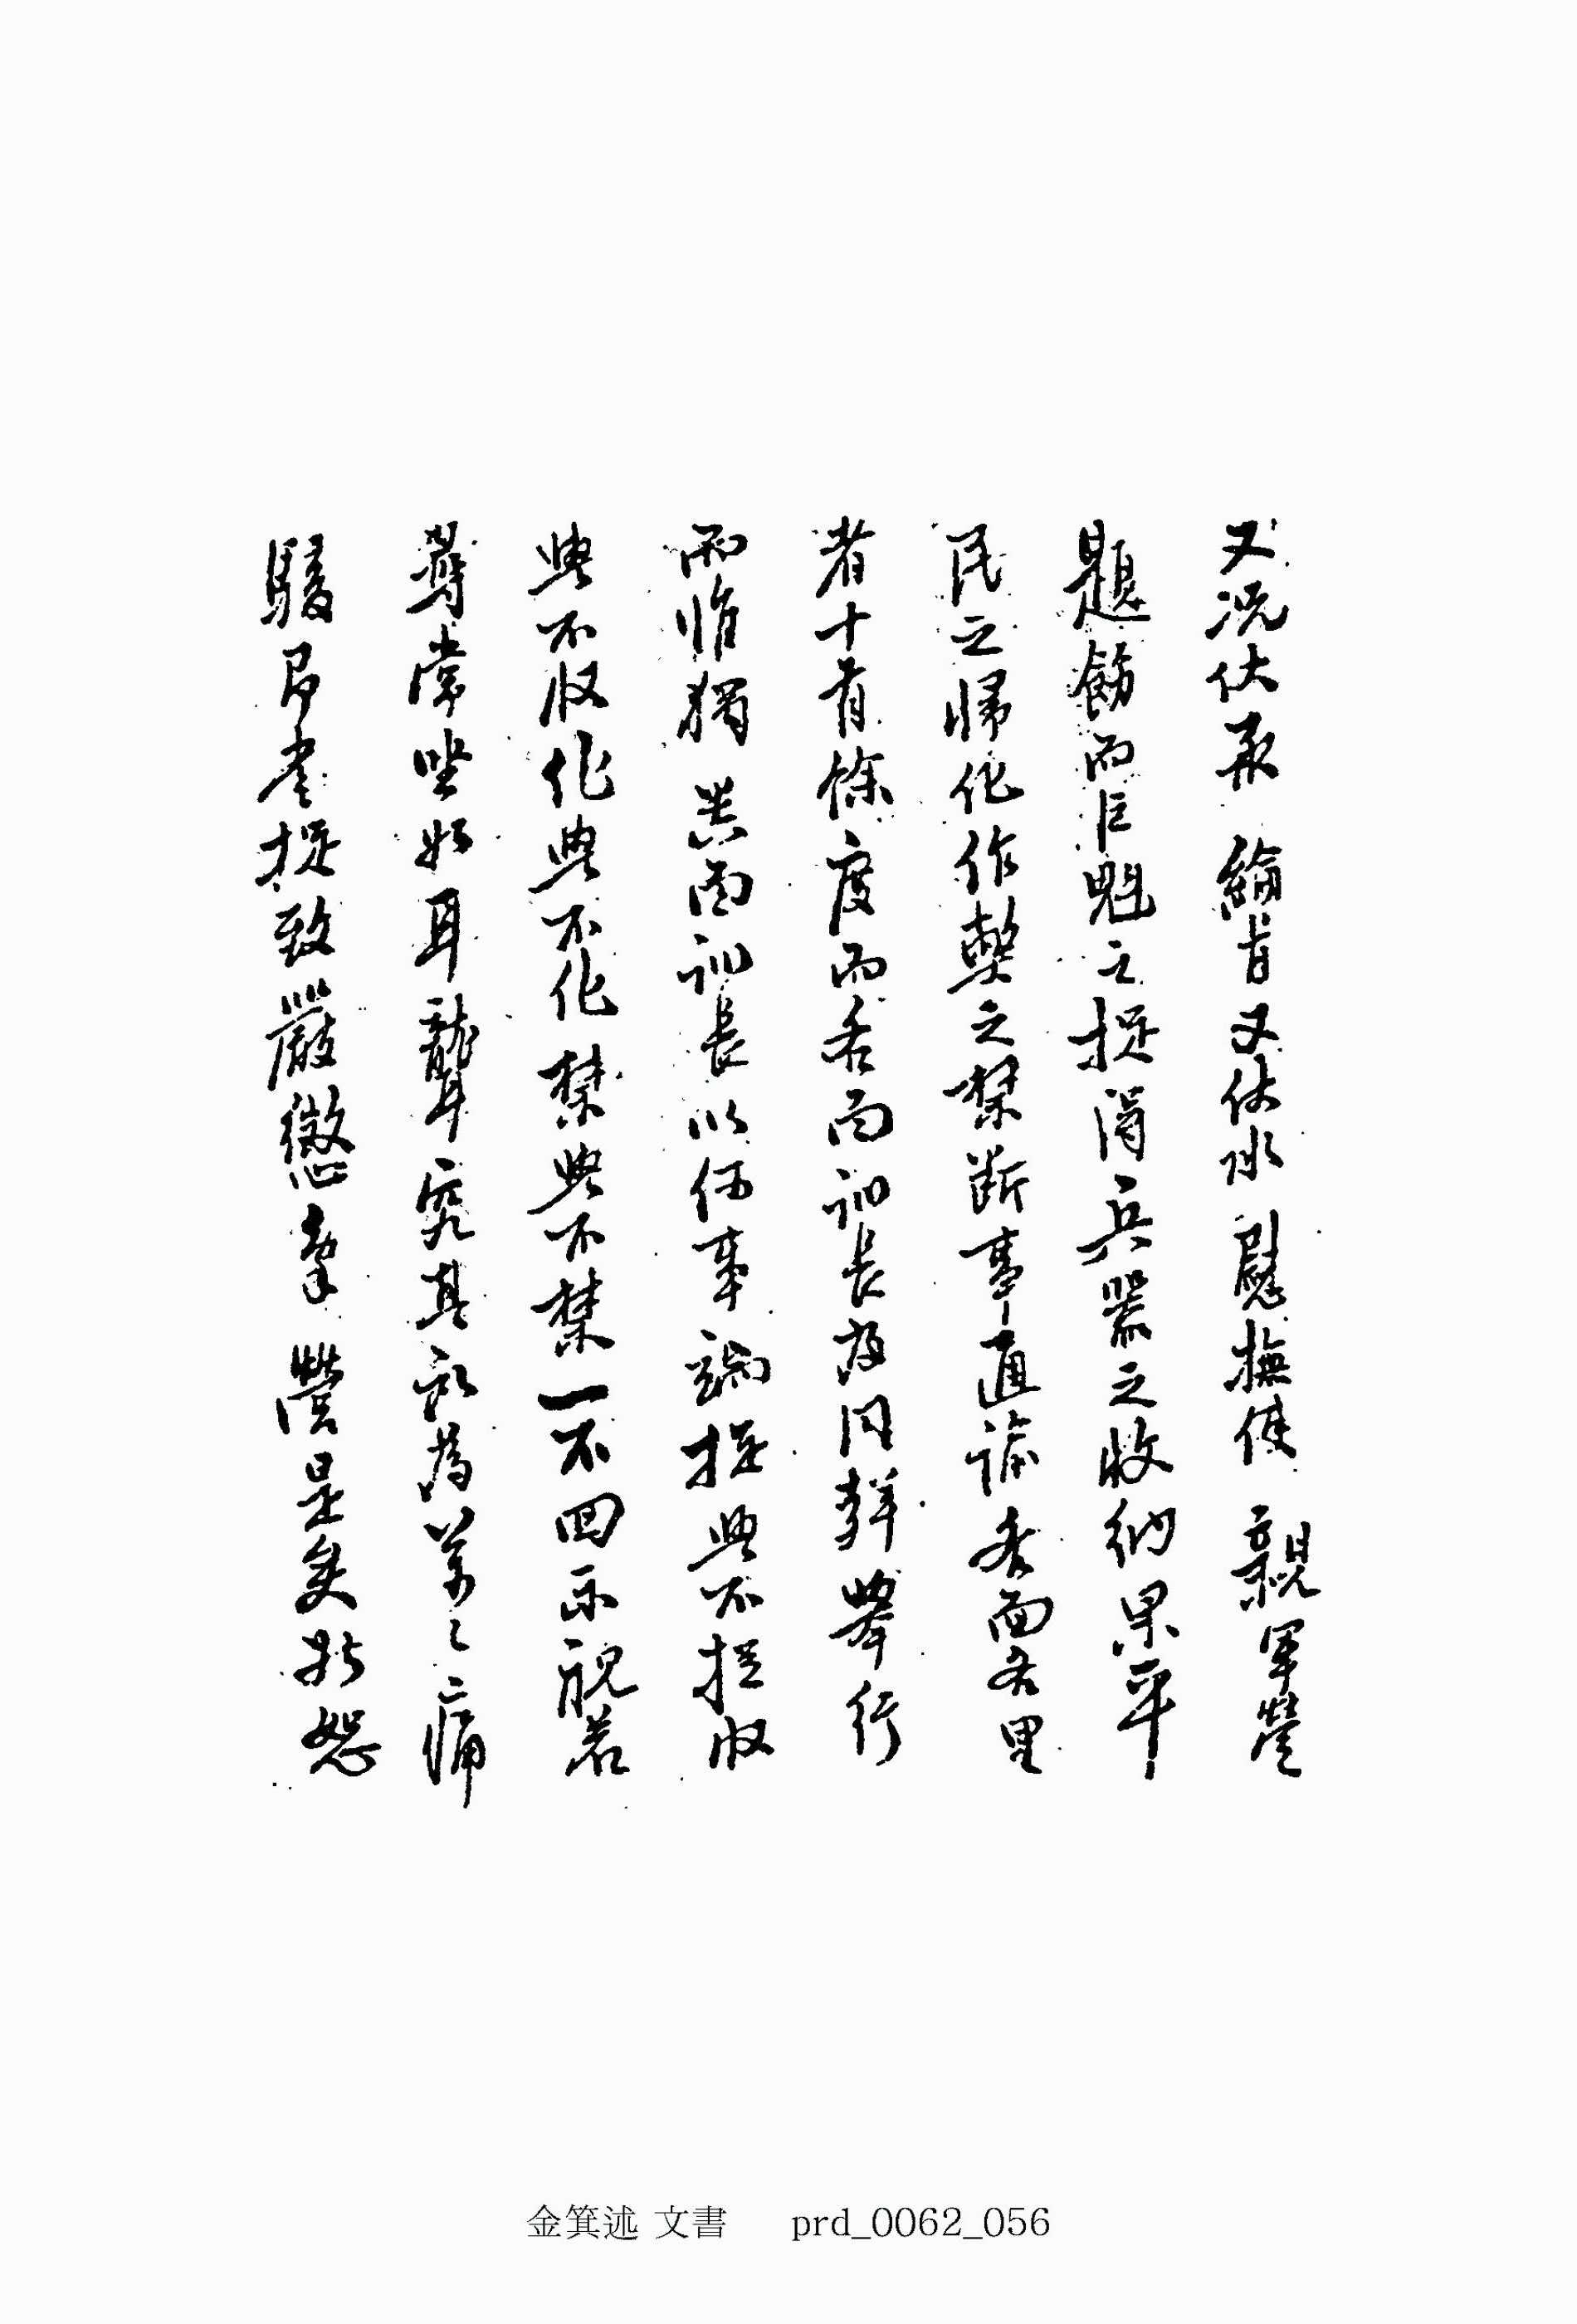 又況伏承 綸旨又伏承 慰撫使 親軍營
題飭而巨魁之捉得兵器之收納果平
民之歸化作契之禁斷事通諭各面各里
者十有餘度而各面訓長及同輩舉行
而惟獨 面訓長以何事端捉與不捉收
與不收化與不化禁與不禁一不回示視若
尋常坐如耳聾究其所為萬々痛
駭即當捉致嚴懲幸 營是矣姑恕
金箕述 文書 prd_0062_056